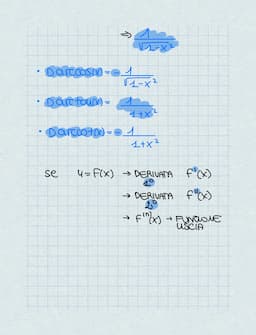 ⇒ 1/√1-x²
• D arccosx = - 1/√1-x²
• D arctanx = 1/1+x²
• D arccotx = - 1/1+x²
se y = f(x) → DERIVATA 1° f'(x)
→ DERIVATA 2° f''(x)
→ f⁽ⁿ⁾(x) → FUNZIONE
USCIA